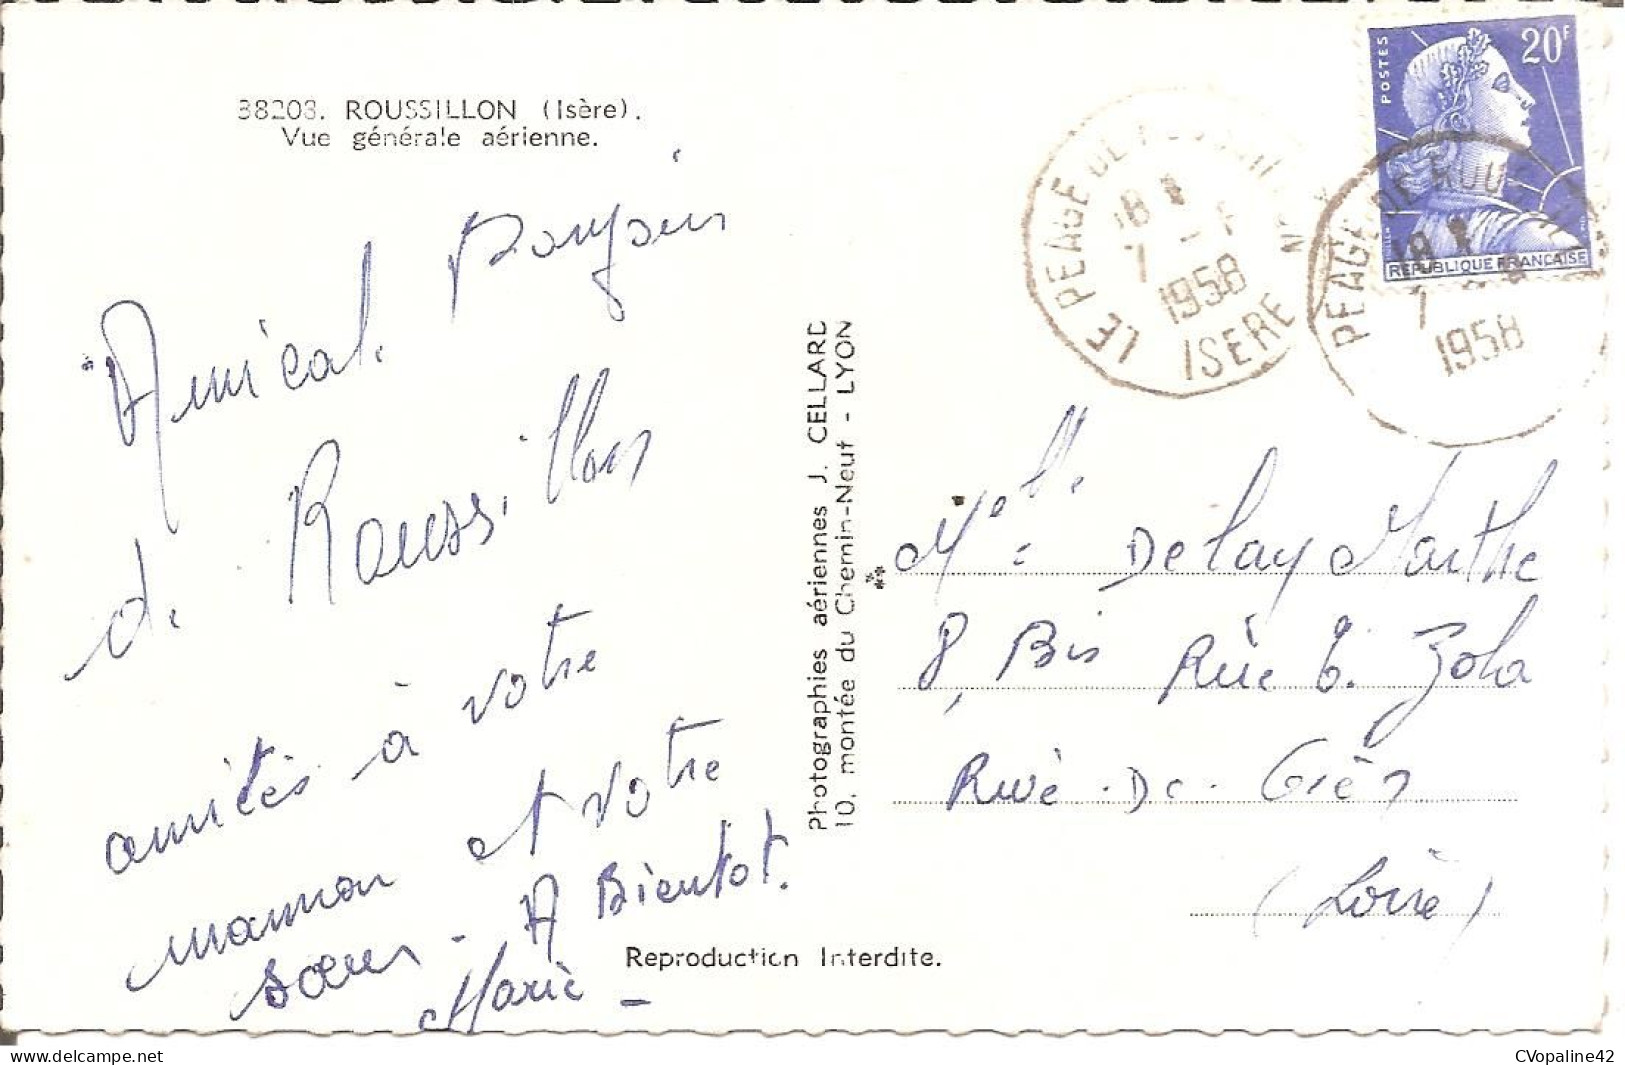 38208. ROUSSILLON (Isère).
Vue générale aérienne.
Amical. Bonjour
de Roussillon
amitiés à votre
maman et votre
sœur - A Bientot.
Marie -
Photographies aériennes J. CELLARD
10, montée du Chemin-Neuf - LYON
Reproduction Interdite.
POSTES
20F
REPUBLIQUE FRANCAISE
LE PEAGE DE
18
7
1958
ISERE
PEAGE DE ROUS
18
7
1958
Melle Delay Marthe
8, Bis Rue E. Zola
Rive-De-Gier
(Loire)
CVopaline42